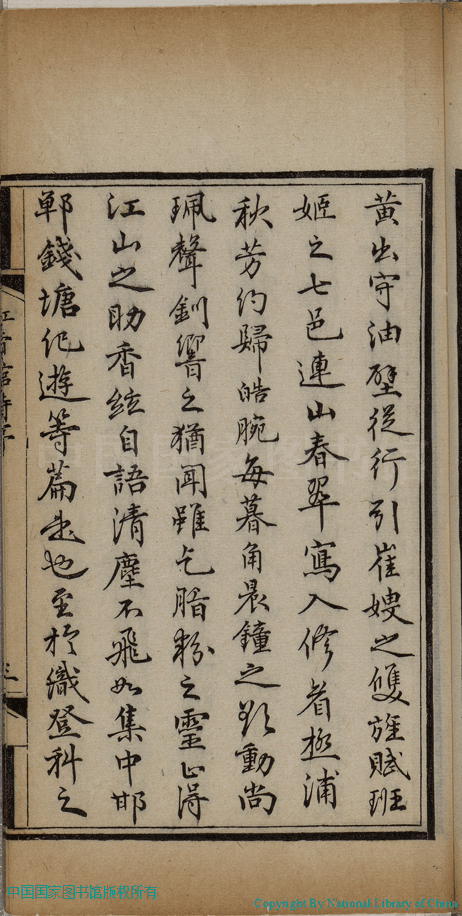 黄出守油壁從行引崔嫂之雙旌賦班
姬之七邑連山春翠寫入修眉極浦
秋芳約歸皓腕每暮角晨鐘之欲動尚
珮聲釧響之猶聞雖乞脂粉之靈正得
江山之助香絃自語清塵不飛如集中邯
鄲錢塘紀遊等篇是也至於織登科之
紅香館詩草
三
中国国家图书馆版权所有
Copyright By National Library of China